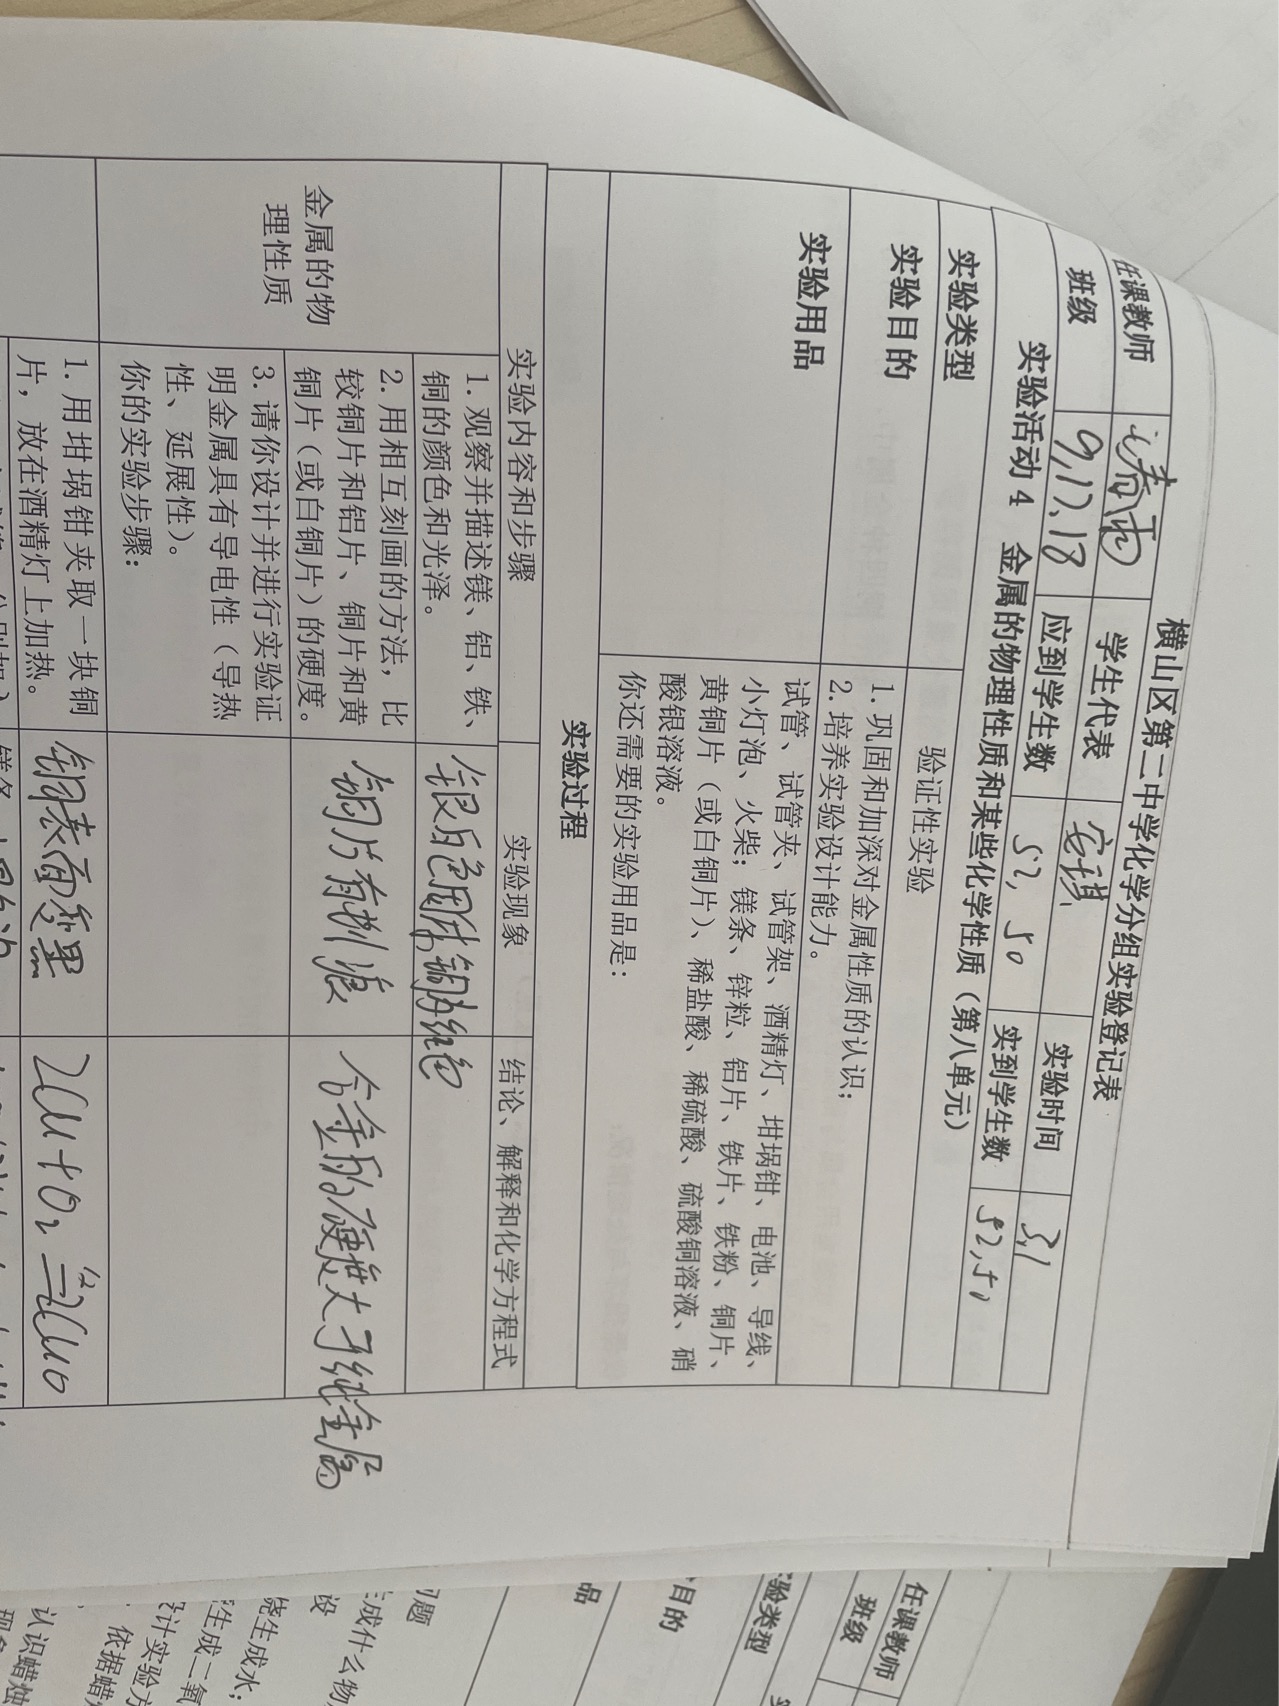 横山区第二中学化学分组实验登记表
任课教师 春雨 学生代表 安琪 实验时间 3,1
班级 9,17.18 应到学生数 52,50 实到学生数 52,50
实验活动4 金属的物理性质和某些化学性质（第八单元）
实验类型 验证性实验
实验目的
1. 巩固和加深对金属性质的认识；
2. 培养实验设计能力。
实验用品
试管、试管夹、试管架、酒精灯、坩埚钳、电池、导线、
小灯泡、火柴；镁条、锌粒、铝片、铁片、铁粉、铜片、
黄铜片（或白铜片）、稀盐酸、稀硫酸、硫酸铜溶液、硝
酸银溶液。
你还需要的实验用品是：
实验过程
实验内容和步骤 实验现象 结论、解释和化学方程式
金属的物
理性质
1. 观察并描述镁、铝、铁、
铜的颜色和光泽。
银白色固体铜为红色
2. 用相互刻画的方法，比
较铜片和铝片、铜片和黄
铜片（或白铜片）的硬度。
铜片有划痕
合金的硬度大于纯金属
3. 请你设计并进行实验证
明金属具有导电性（导热
性、延展性）。
你的实验步骤：
1. 用坩埚钳夹取一块铜
片，放在酒精灯上加热。
铜表面变黑
2Cu+O₂ ≜ 2CuO
任课教师
班级
实验类型
目的
品
问题
生成什么物
设
烧生成水；
生成二氧
设计实验方
依据蜡
认识蜡烛